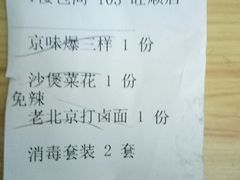 京味爆三样 1 份
沙煲菜花 1 份
免辣
老北京打卤面 1 份
消毒套装 2 套